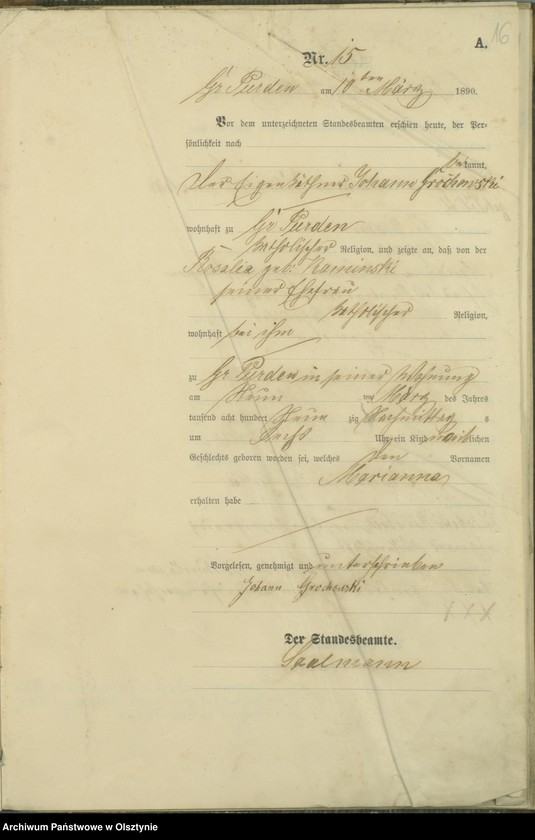 16
A.
Nr. 15
Gr Purden am 10ten März 1890.
Vor dem unterzeichneten Standesbeamten erschien heute, der Per-
sönlichkeit nach
bekannt,
der Eigenkäthner Johann Grochowski
wohnhaft zu Gr Purden
katholischer Religion, und zeigte an, daß von der
Rosalia geb: Kaminski
seiner Ehefrau
katholischer Religion,
wohnhaft bei ihm
zu Gr Purden in seiner Wohnung
am Neun ten März des Jahres
tausend acht hundert Neun zig Nachmittag s
um Sechs Uhr ein Kind weiblichen
Geschlechts geboren worden sei, welches den Vornamen
Marianna
erhalten habe
Vorgelesen, genehmigt und unterschrieben
Johann Grochowski
Der Standesbeamte.
Saalmann
Archiwum Państwowe w Olsztynie